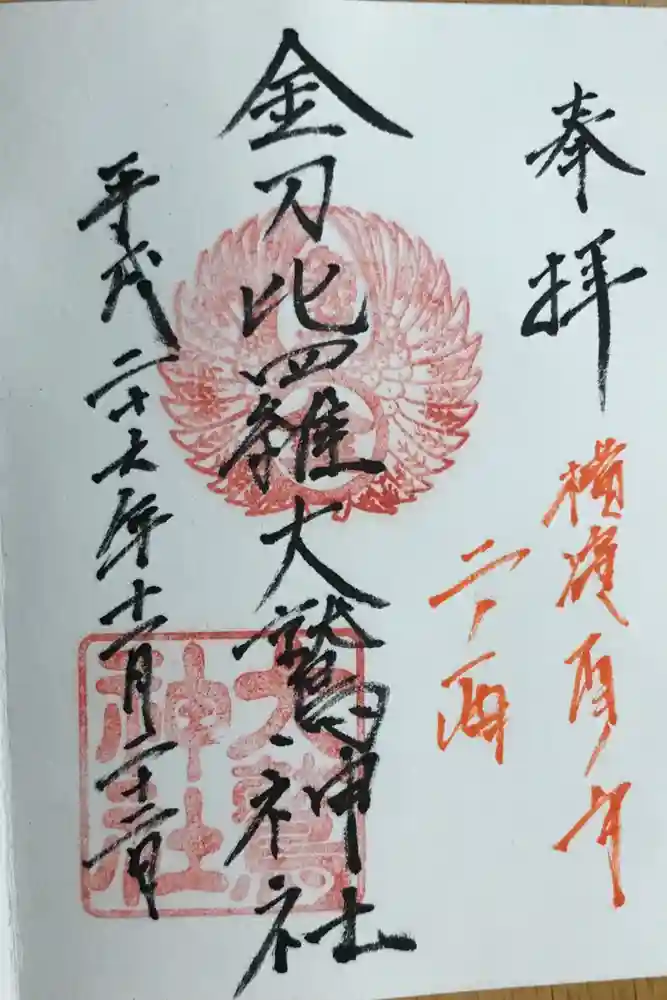 奉拝
横濱酉ノ市
二ノ酉
金刀比羅大鷲神社
平成二十六年十一月二十二日
大鷲
神社